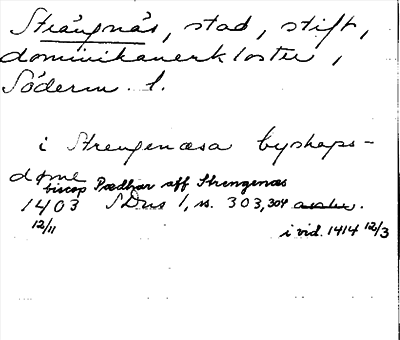 Strängnäs, stad, stift,
dominikanerkloster,
Söderm. l.
i Strengenæsa byskops-
døme
biscop Pædhar aff Strengenæs
1403 SDns 1, ss. 303, 304
12/11
i vid. 1414 12/3